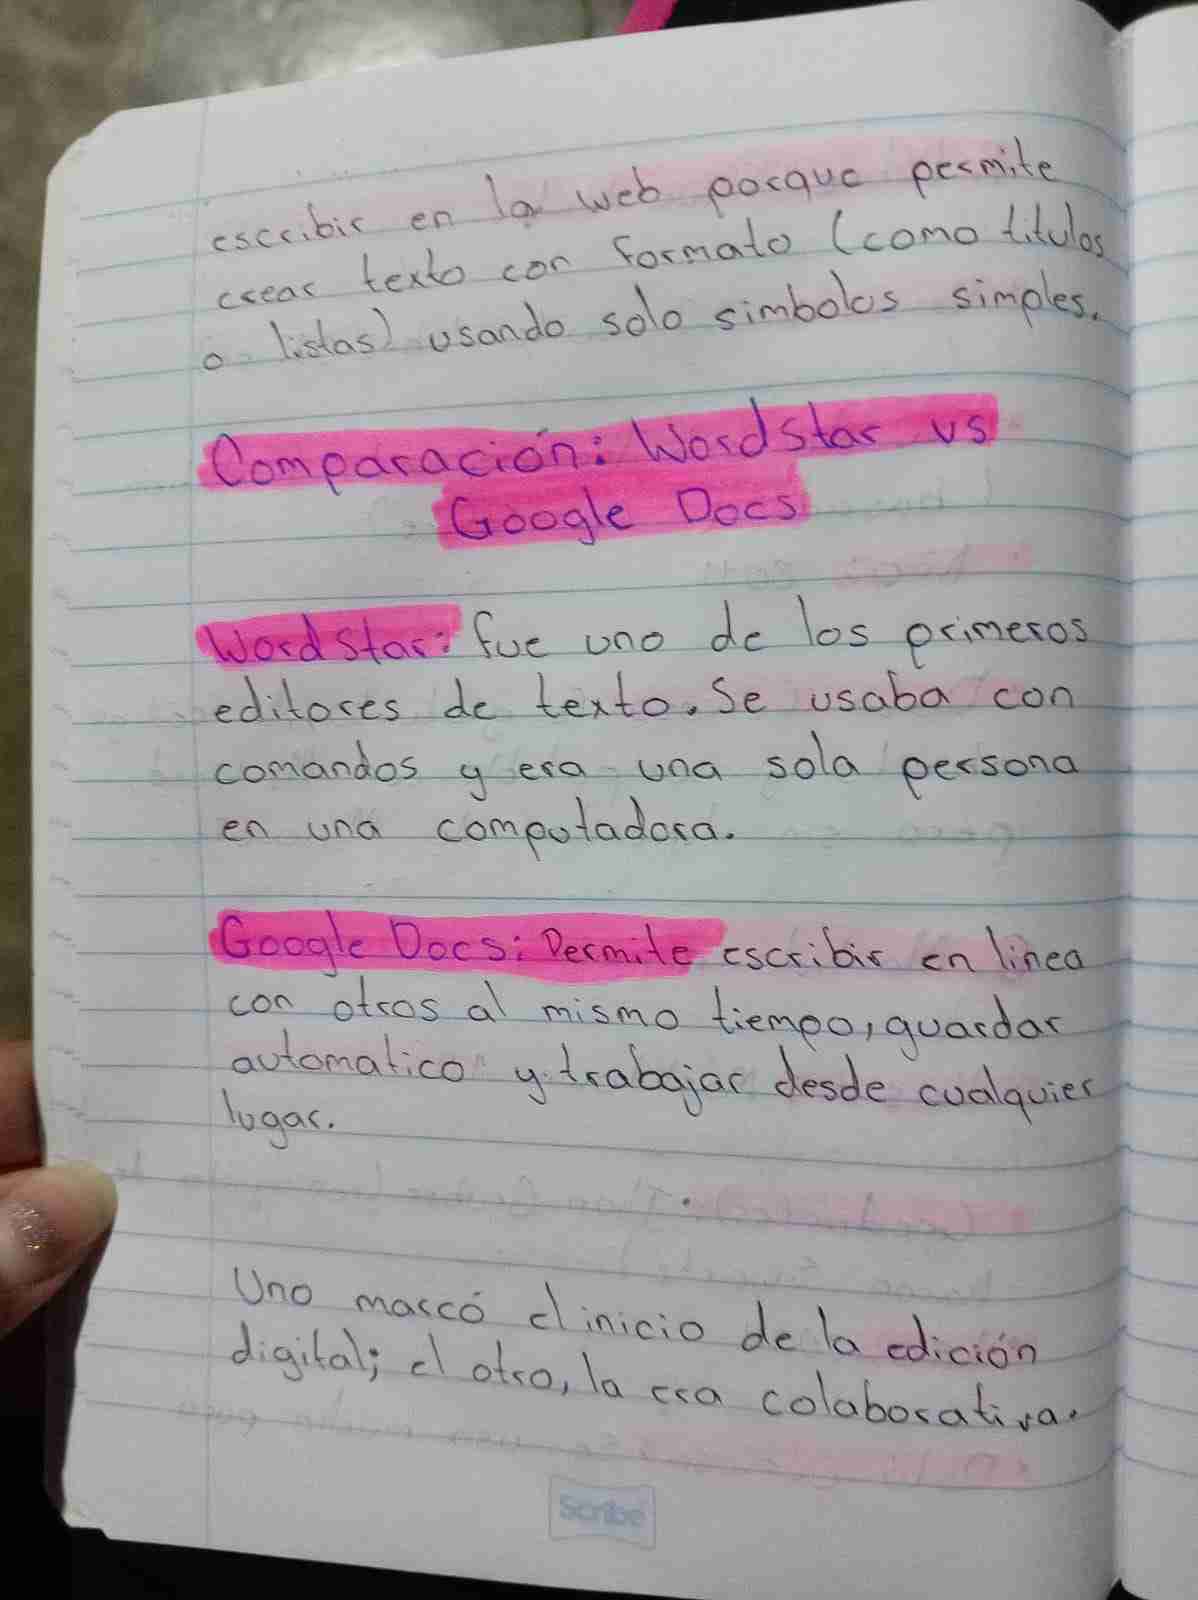 escribir en la web porque permite
crear texto con formato (como titulos
o listas) usando solo simbolos simples.
Comparación: Wordstar vs
Google Docs
Wordstar: fue uno de los primeros
editores de texto. Se usaba con
comandos y era una sola persona
en una computadora.
Google Docs: Permite escribir en linea
con otros al mismo tiempo, guardar
automatico y trabajar desde cualquier
lugar.
Uno marcó el inicio de la edición
digital; el otro, la era colaborativa.
Scribe